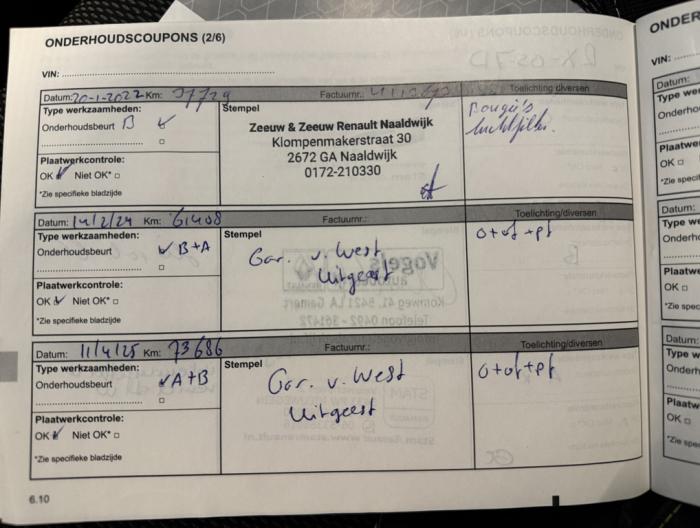 ONDERHOUDSCOUPONS (2/6)
VIN:
Datum: 20-1-2022 Km: 37729 Factuurnr.: Toelichting/diversen
Type werkzaamheden:
Onderhoudsbeurt B
Stempel
Zeeuw & Zeeuw Renault Naaldwijk
Klompenmakerstraat 30
2672 GA Naaldwijk
0172-210330
Bougie's
luchtfilter.
Plaatwerkcontrole:
OK Niet OK*
*Zie specifieke bladzijde
Datum: 14/2/24 Km: 61408 Factuurnr.: Toelichting/diversen
Type werkzaamheden:
Onderhoudsbeurt B+A
Stempel
Gar. v. West
Uitgeest
o+of+pf
Plaatwerkcontrole:
OK Niet OK*
*Zie specifieke bladzijde
Datum: 11/4/25 Km: 73686 Factuurnr.: Toelichting/diversen
Type werkzaamheden:
Onderhoudsbeurt A+B
Stempel
Gar. v. West
Uitgeest
o+of+pf
Plaatwerkcontrole:
OK Niet OK*
*Zie specifieke bladzijde
6.10
ONDER
VIN:
Datum:
Type we
Onderho
Plaatwe
OK
*Zie speci
Datum:
Type we
Onderh
Plaatwe
OK
*Zie spec
Datum:
Type w
Onderh
Plaatw
OK
*Zie spe